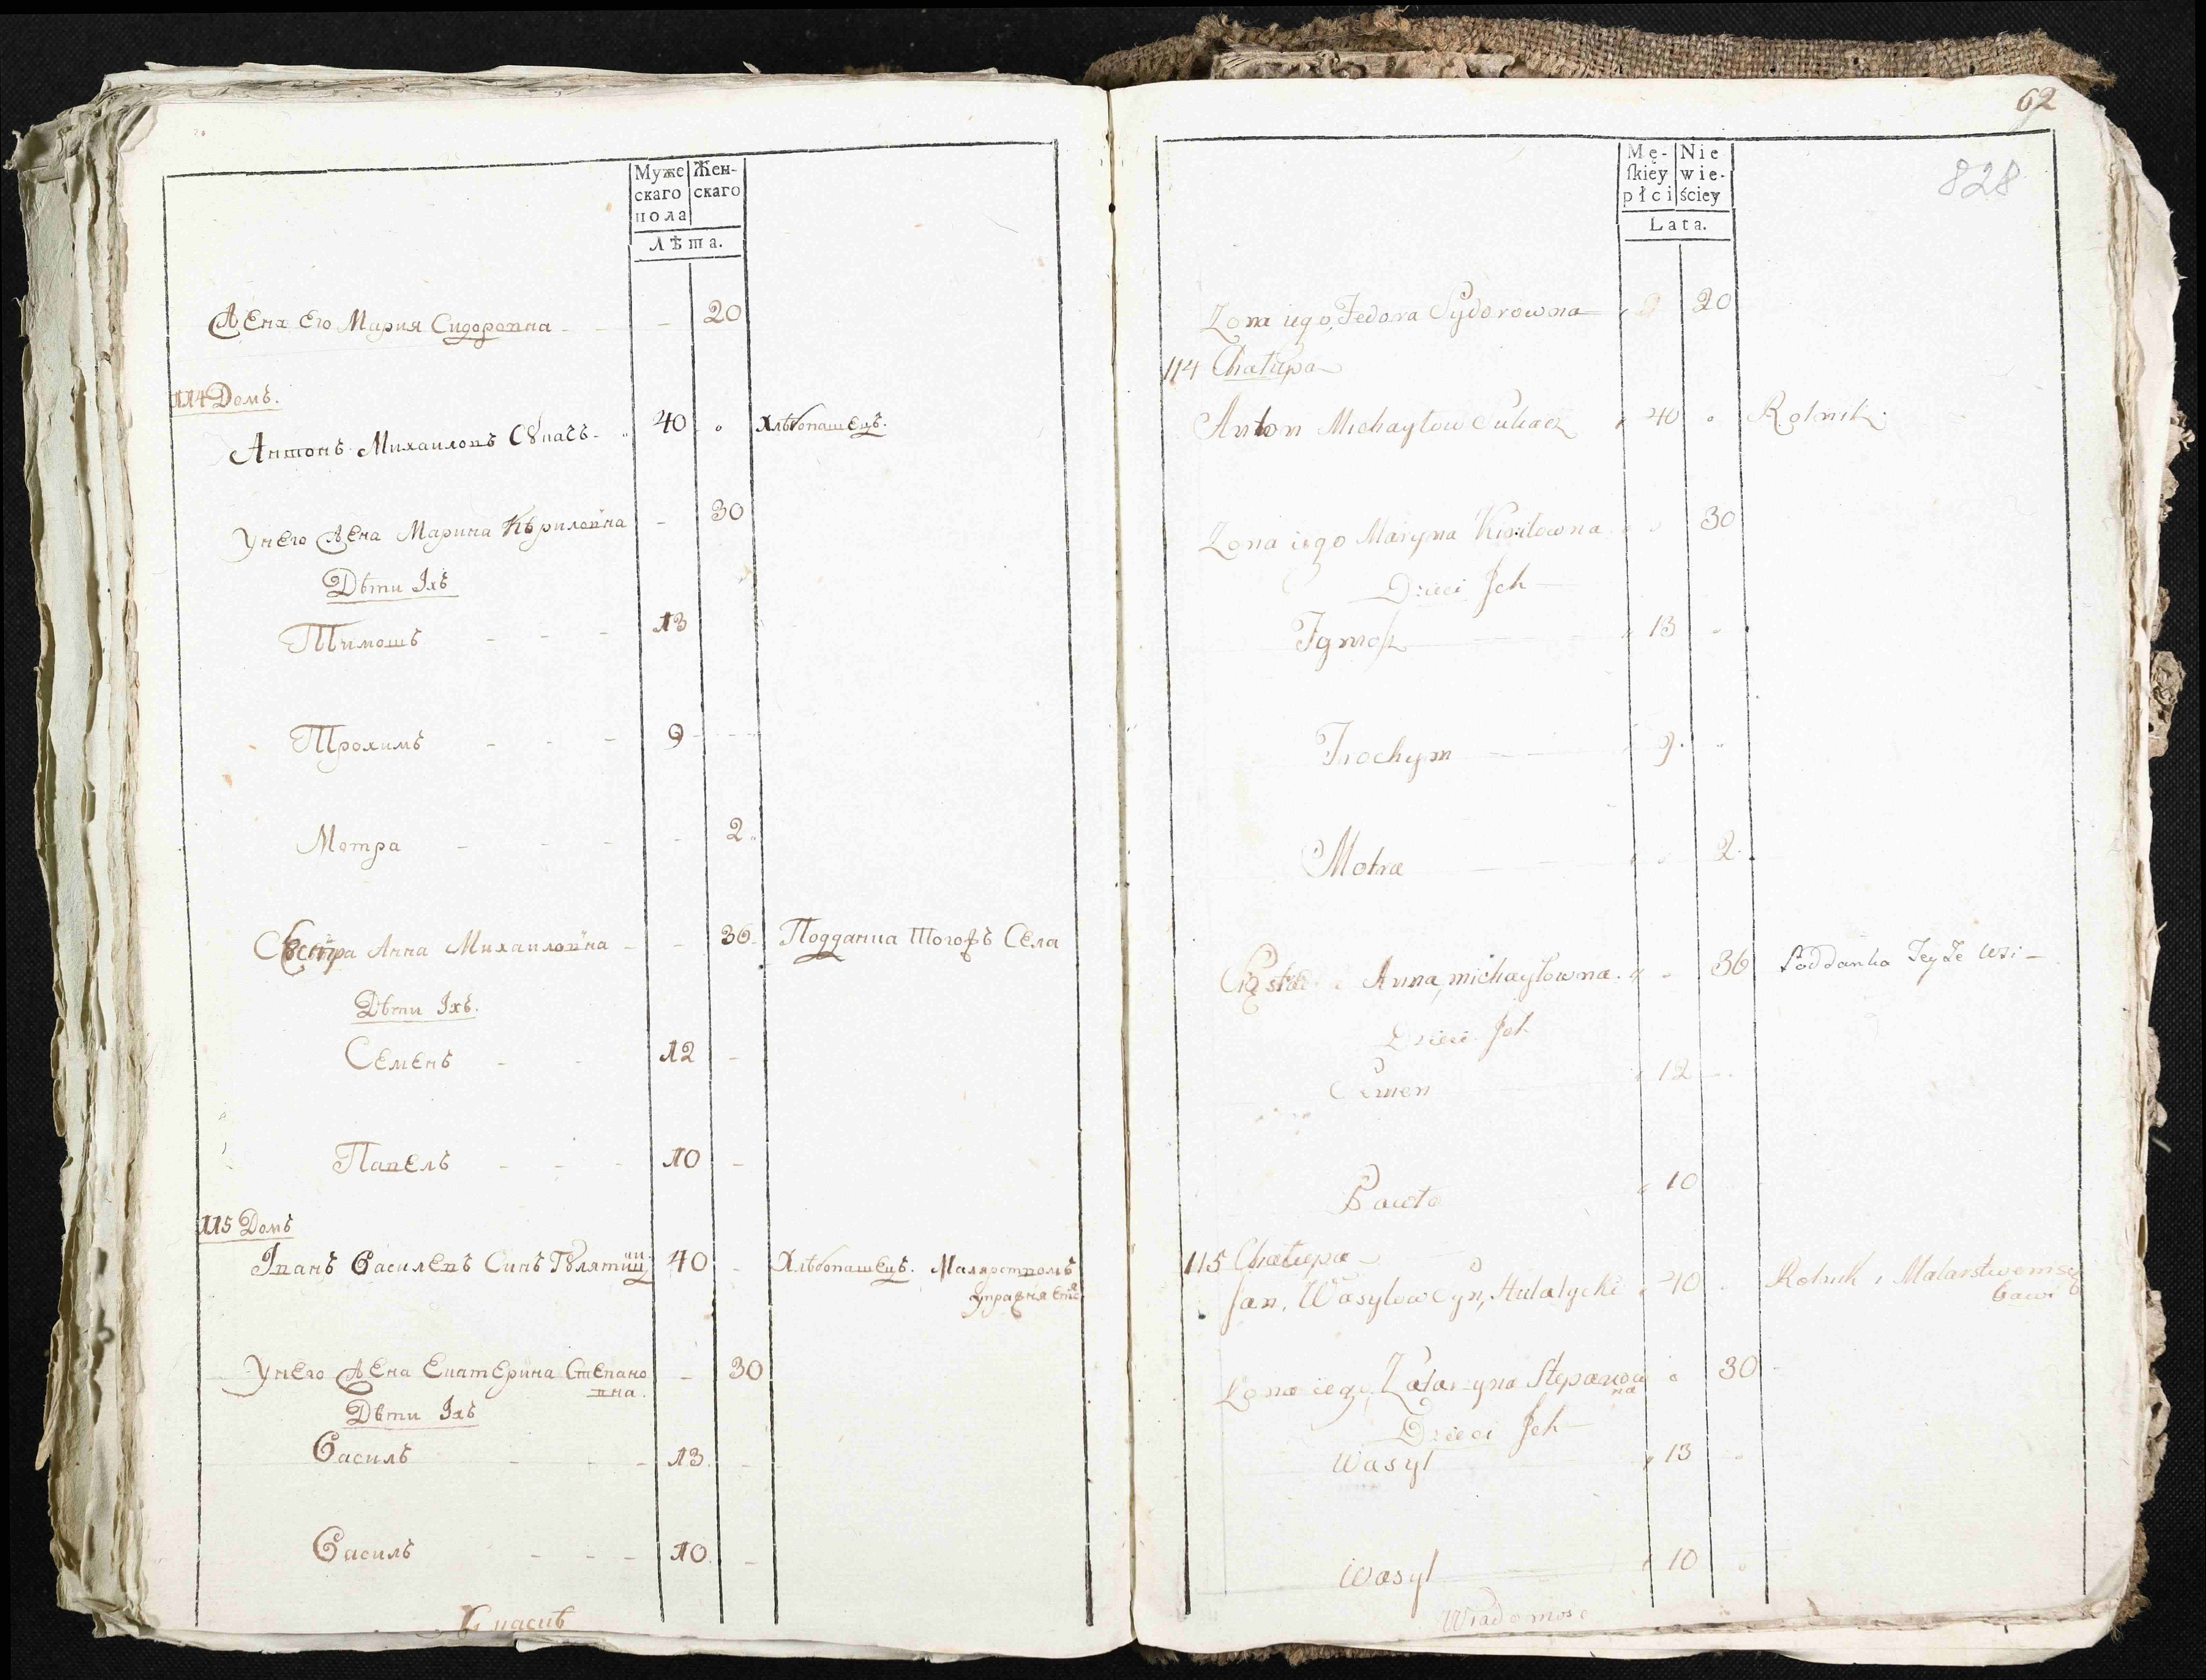 Муже
скаго
пола
Жен-
скаго
Лѣта.
Жена Его Мария Сидоровна - - - 20
114 Домъ.
Антонъ Михаиловъ Сꙋкачъ - 40 Хлѣбопашецъ.
Унего Жена Марина Кѣриловна - 30
Дѣти Іхъ
Тимошъ - - - 13
Трохимъ - - - 9
Мотра - - - - 2
Сестра Анна Михаиловна - - 36 Подданка Тогожъ Села
Дѣти Іхъ.
Семенъ - - 12 -
Павелъ - - - 10 -
115 Домъ
Іванъ Василевъ Синъ Гꙋлятицкий 40 - Хлѣбопашецъ. Малярством
управляется
Унего Жена Екатерина Степано - 30
вна.
Дѣти Іхъ
Василъ - - - 13 -
Василъ - - - 10 -
62
828
Mę-
ſkiey
płci
Nie
wie-
ściey
Lata.
Zona iego, Fedora Sydorowna 20
114 Chałupa
Anton Michayłow Sukacz 40 Rolnik
Zona iego Maryna Kiryłowna 30
Dzieci Jch
Tymoſz 13
Trochym 9
Motra 2
Siostra Anna, michayłowna 36 Poddanka Teyże Wsi -
Dzieci Jch
Semen 12
Pawło 10
115 Chałupa
Jan, Wasylow Syn, Hulatycki 40 Rolnik i Malarstwem się
bawi
Zona iego, Katarzyna Stepanow 30
na
Dzieci Jch
Wasyl 13
Wasyl 10
Wiadomosc